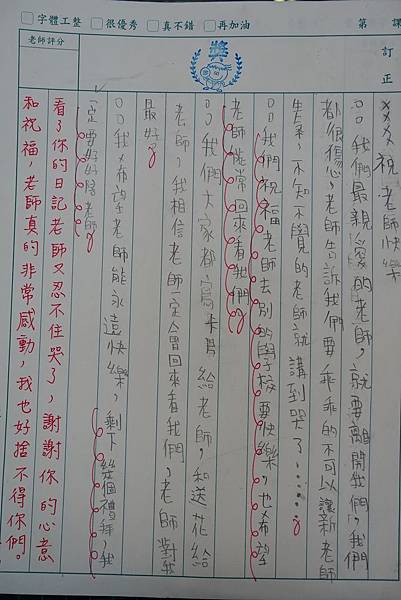 字體工整 很優秀 真不錯 再加油
第 課
老師評分
獎
訂正
XXX祝老師快樂
○○我們最親愛的老師,就要離開我們,我們
都很傷心,老師告訴我們要乖乖的不可以讓新老師
生氣,不知不覺的老師就講到哭了……。
○○我們祝福老師去別的學校要快樂,也希望
老師能常回來看我們。
○○我們大家都寫卡片給老師,和送花給
老師,我相信老師一定會回來看我們,老師對我
最好。
○○我希望老師能永遠快樂,剩下幾個禮拜,我
一定要好好陪老師。
看了你的日記老師又忍不住哭了,謝謝你的心意
和祝福,老師真的非常感動,我也好捨不得你們。